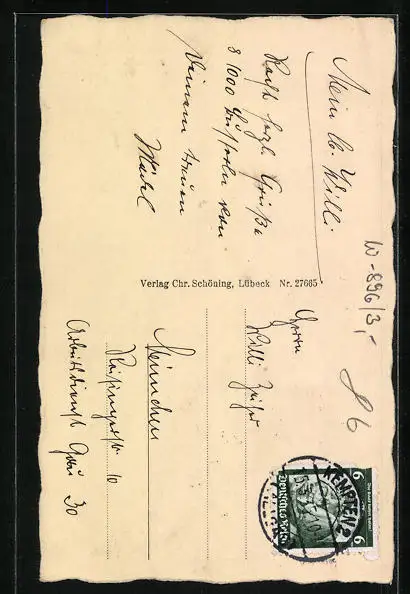 Mein lb. Willi
Recht herzl. Grüße
& 1000 Küsse von
Deinem treuen
Mädel
Verlag Chr. Schöning, Lübeck Nr. 27665
W-896/3,-
Herrn
Willi
München
10
Arbeitsdienst Gau 30
KEMPTEN 2
Deutsches Reich
6 6